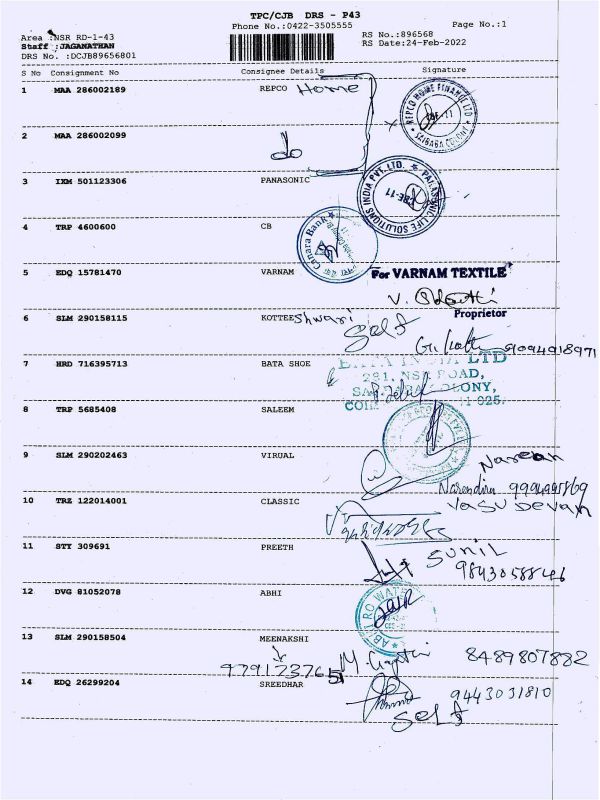 TPC/CJB DRS - P43
Phone No.:0422-3505555
Page No.:1
Area :NSR RD-1-43
RS No.:896568
Staff :JAGANATHAN
RS Date:24-Feb-2022
DRS No. :DCJB89656801
S No Consignment No Consignee Details Signature
1 MAA 286002189 REPCO Home
REPCO HOME FINANCE LTD
SAIBABA COLONY
2 MAA 286002099 do
3 IXM 501123306 PANASONIC
PANASONIC LIFE SOLUTIONS INDIA PVT. LTD.
CBE-11
4 TRP 4600600 CB
Canara Bank
5 EDQ 15781470 VARNAM
For VARNAM TEXTILE
V.
Proprietor
6 SLM 290158115 KOTTEEshwari
Self
9094918971
7 HRD 716395713 BATA SHOE
BATA INDIA LTD
281, NSR ROAD,
COLONY,
8 TRP 5685408 SALEEM
9 SLM 290202463 VIRUAL
Nareen
Narendira
10 TRZ 122014001 CLASSIC
Vasudevan
11 STY 309691 PREETH
Sunil
12 DVG 81052078 ABHI
RO WATER
13 SLM 290158504 MEENAKSHI
M.
8489807882
14 EDQ 26299204 SREEDHAR
9443031810
Self